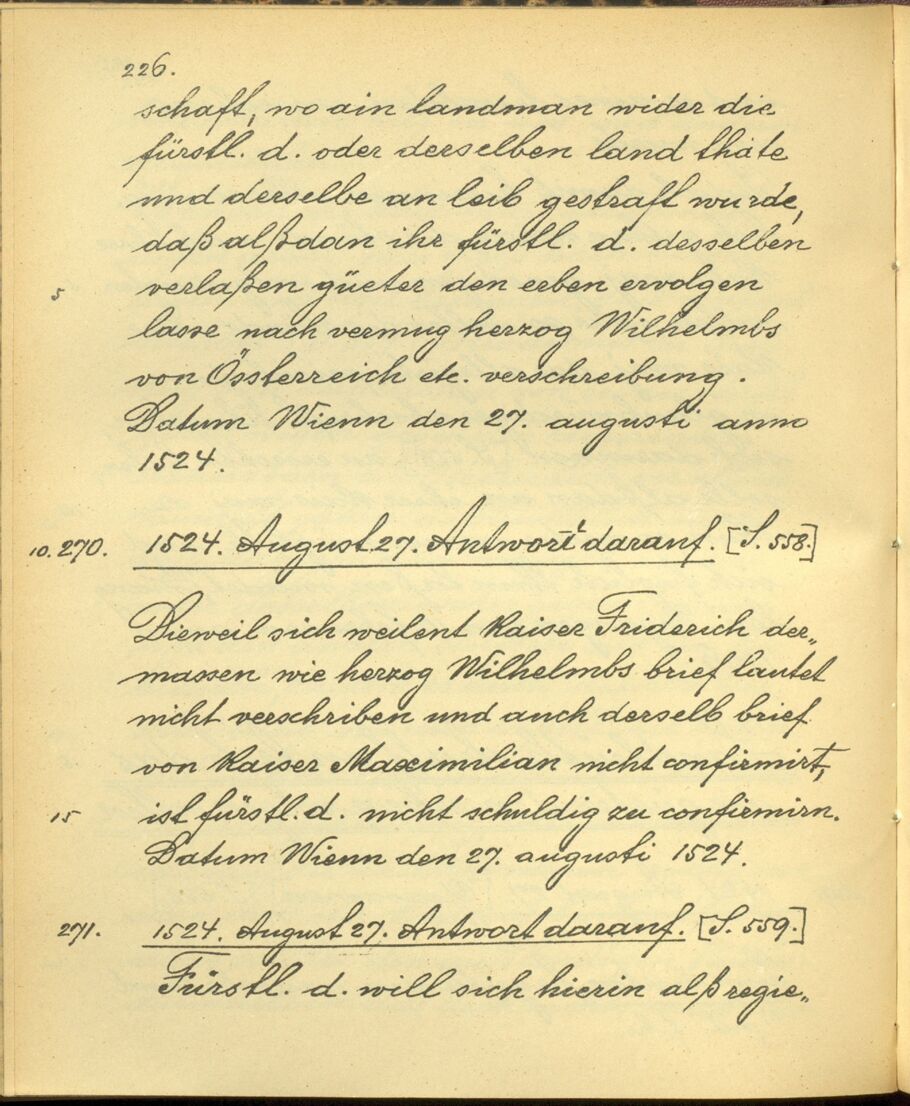 226.
schaft, wo ain landman wider die
fürstl. d. oder derselben land thäte
und derselbe an leib gestraft wurde,
daß alßdan ihr fürstl. d. desselben
5 verlaßen güeter den erben ervolgen
lasse nach vermug herzog Wilhelmbs
von Össterreich etc. verschreibung.
Datum Wienn den 27. augusti anno
1524.
10. 270. 1524. August 27. Antwort darauf. [S. 558.]
Dieweil sich weilent kaiser Friderich der„
massen wie herzog Wilhelmbs brief lautet
nicht verschriben und auch derselb brief
von kaiser Maximilian nicht confirmirt,
15 ist fürstl. d. nicht schuldig zu confirmirn.
Datum Wienn den 27. augusti 1524.
271. 1524. August 27. Antwort darauf. [S. 559.]
Fürstl. d. will sich hierin alß regie„